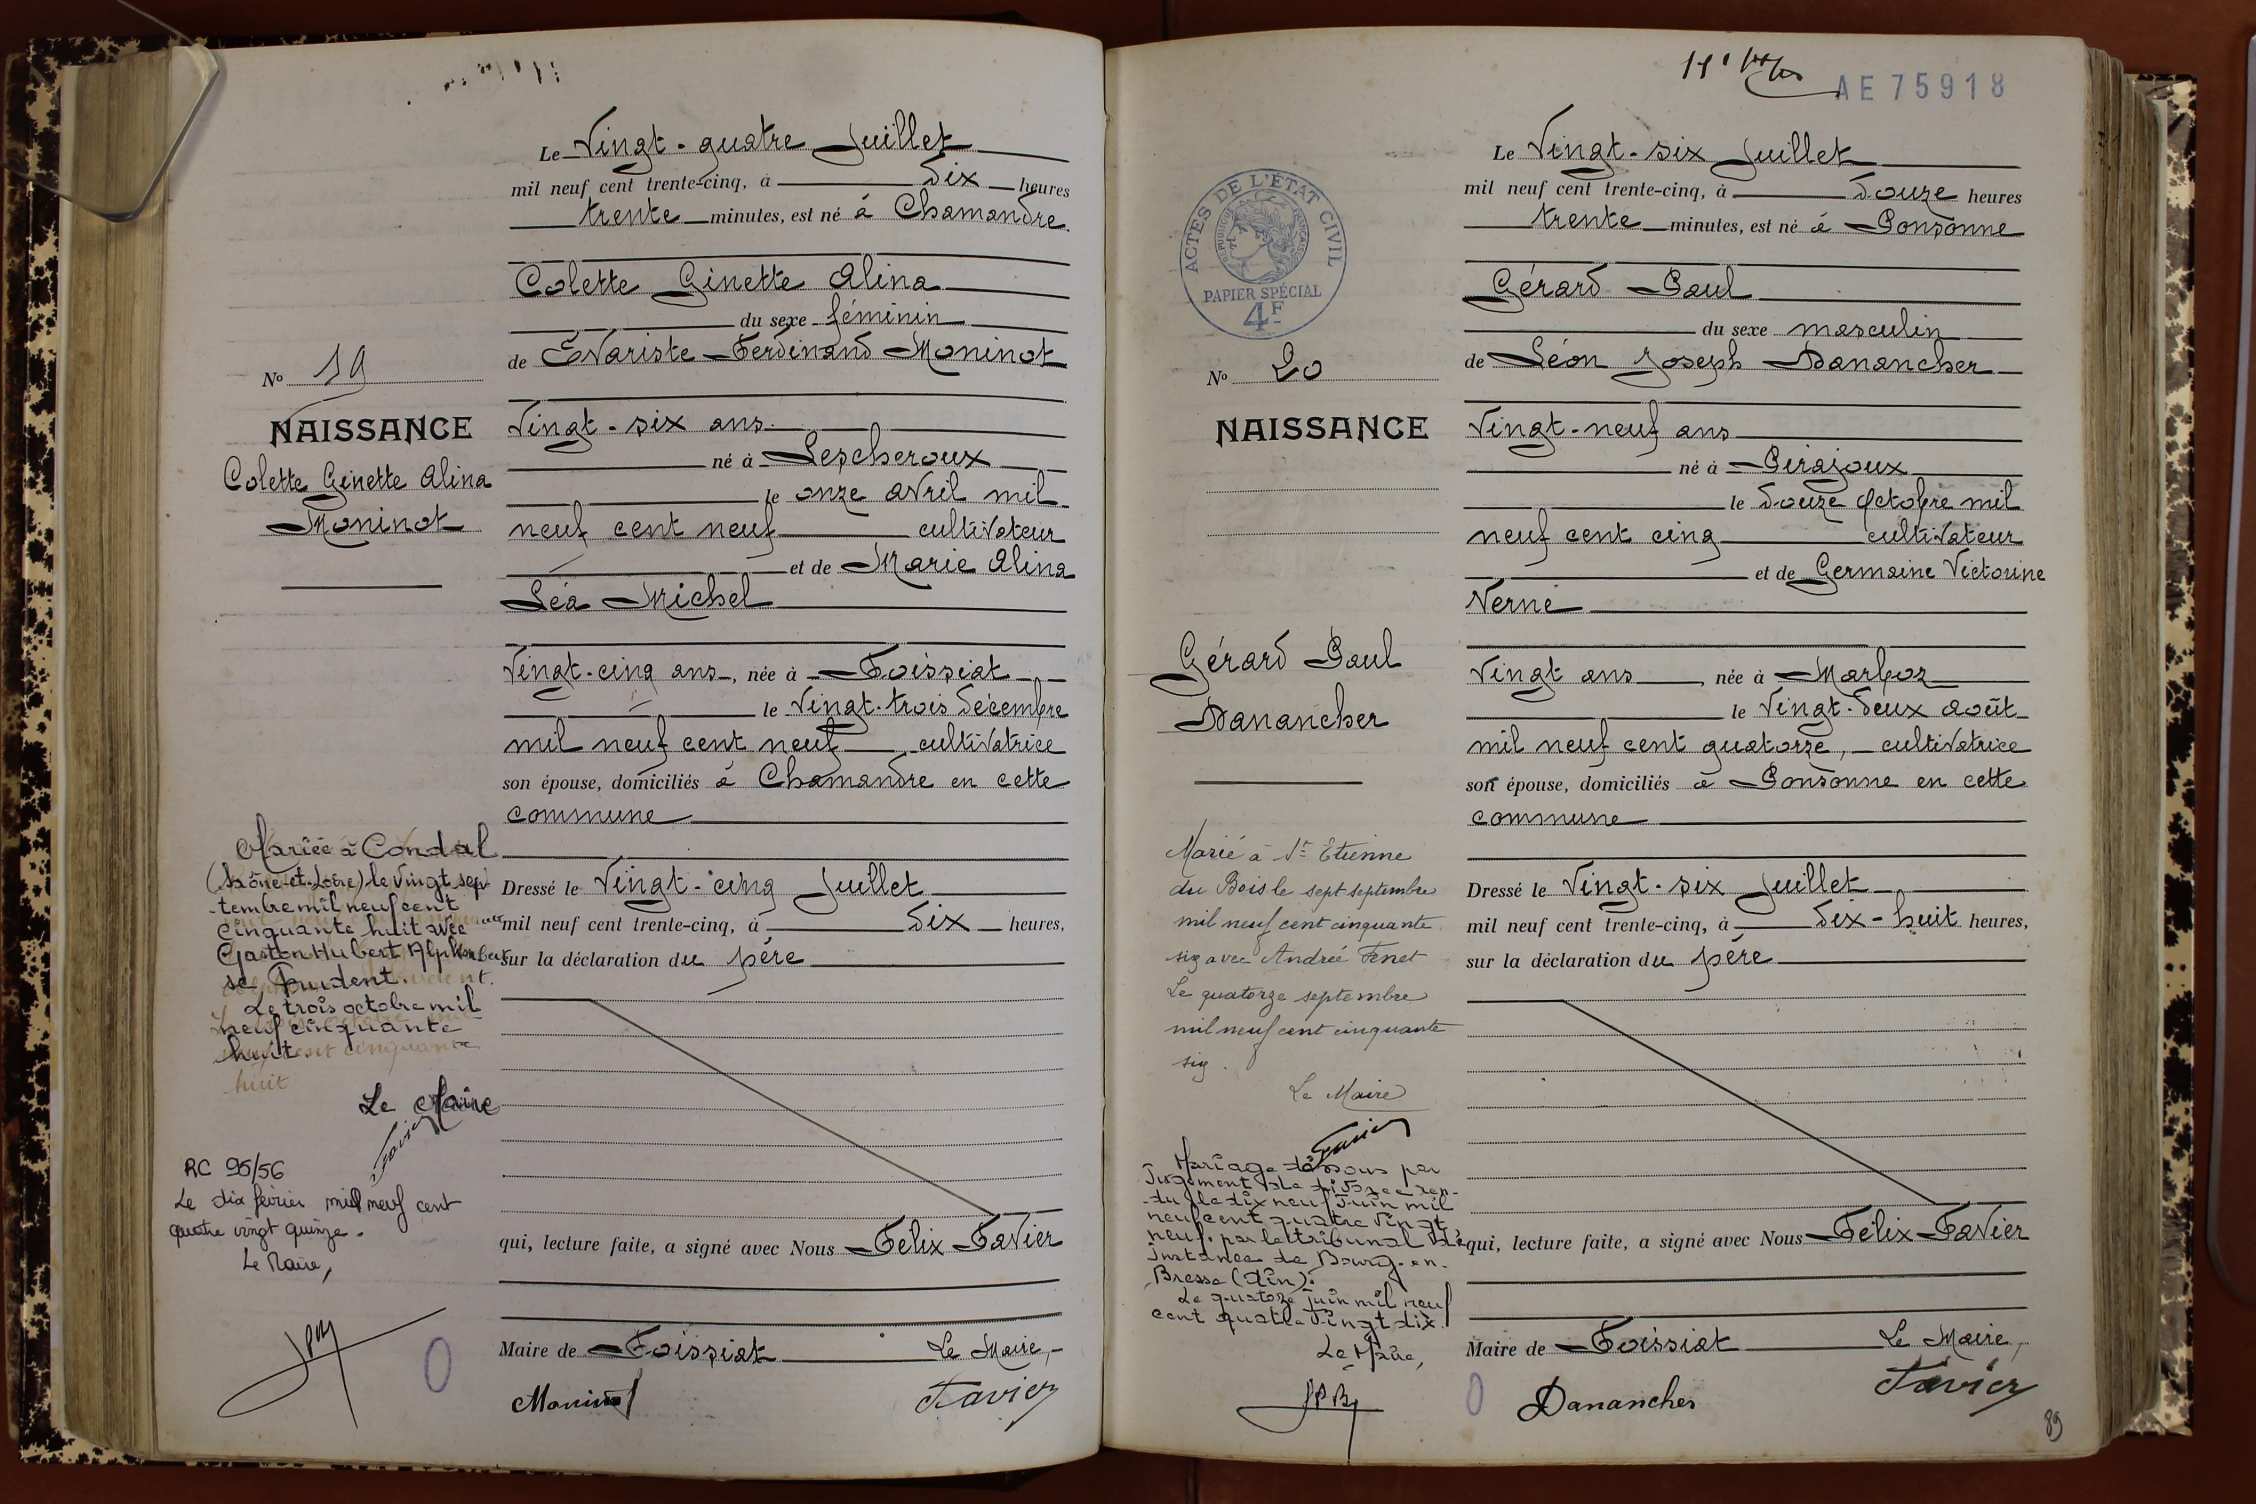 Le Vingt-quatre Juillet
mil neuf cent trente-cinq, à dix heures
trente minutes, est né à Chamandre.
Colette Ginette Alina
du sexe féminin
de Évariste Ferdinand Moninot
No 19
NAISSANCE
Colette Ginette Alina
Moninot
Vingt-six ans
né à Lescheroux
le onze Avril mil
neuf cent neuf cultivateur
et de Marie Alina
Léa Michel
Vingt-cinq ans, née à Foissiat
le Vingt-trois décembre
mil neuf cent neuf, cultivatrice
son épouse, domiciliés à Chamandre en cette
commune
Dressé le Vingt-cinq Juillet
mil neuf cent trente-cinq, à dix heures,
sur la déclaration du père
Mariée à Condal
(Saône-et-Loire) le vingt sep
-tembre mil neuf cent
cinquante huit avec
Gaston Hubert Alphon
se Prudent.
Le trois octobre mil
neuf cinquante
huit
Le Maire
Favier
RC 95/56
Le dix février mil neuf cent
quatre vingt quinze.
Le Maire,
qui, lecture faite, a signé avec Nous Félix Favier
Maire de Foissiat Le Maire,
Moninot Favier
AE 75918
ACTES DE L'ÉTAT CIVIL
RÉPUBLIQUE FRANÇAISE
PAPIER SPÉCIAL
4F
Le Vingt-six Juillet
mil neuf cent trente-cinq, à douze heures
trente minutes, est né à Ponsonne
Gérard Paul
du sexe masculin
de Léon Joseph Danancher
No 20
NAISSANCE
Gérard Paul
Danancher
Vingt-neuf ans
né à Pirajoux
le douze Octobre mil
neuf cent cinq cultivateur
et de Germaine Victorine
Verne
Vingt ans, née à Marboz
le Vingt-deux août
mil neuf cent quatorze, cultivatrice
son épouse, domiciliés à Ponsonne en cette
commune
Dressé le Vingt-six Juillet
mil neuf cent trente-cinq, à dix-huit heures,
sur la déclaration du père
Marié à St Etienne
du Bois le sept septembre
mil neuf cent cinquante
six avec Andrée Fenet
Le quatorze septembre
mil neuf cent cinquante
six.
Le Maire
Favier
Mariage dissous par
Jugement de divorce ren-
-du le dix neuf Juin mil
neuf cent quatre vingt
neuf. par le tribunal de
instance de Bourg-en-
Bresse (Ain).
Le quatorze juin mil neuf
cent quatre vingt dix.
Le Maire,
qui, lecture faite, a signé avec Nous Félix Favier
Maire de Foissiat Le Maire,
Danancher Favier
89